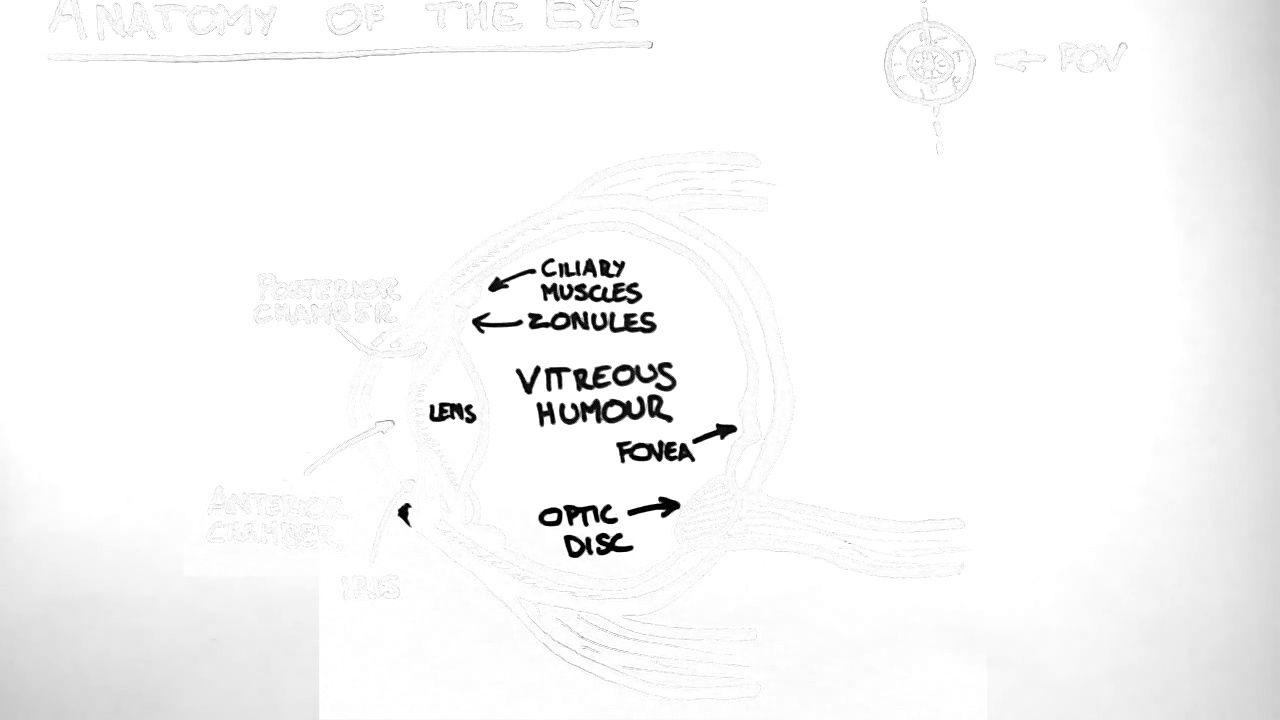 ANATOMY OF THE EYE
POV
CILIARY
MUSCLES
ZONULES
POSTERIOR
CHAMBER
VITREOUS
HUMOUR
LENS
FOVEA
ANTERIOR
CHAMBER
OPTIC
DISC
IRIS